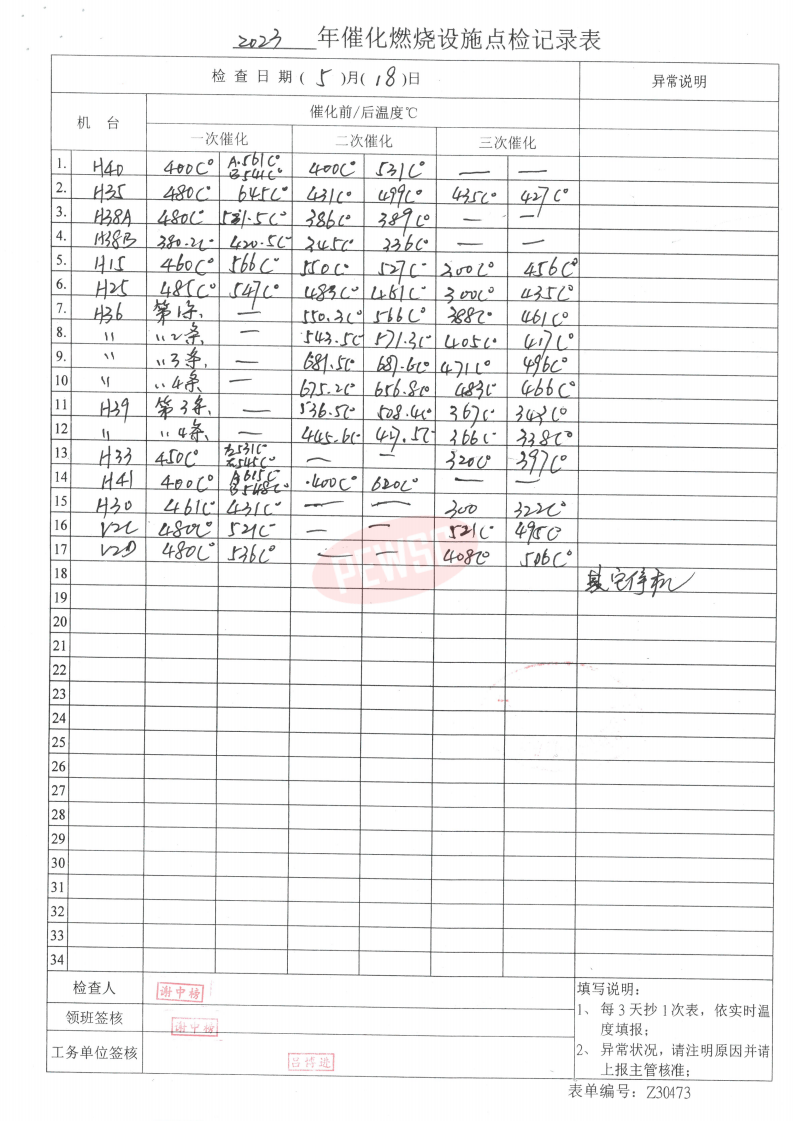 2023 年催化燃烧设施点检记录表
检查日期( 5 )月( 18 )日 异常说明
机 台 催化前/后温度℃
一次催化 二次催化 三次催化
1. H40 400C° A.561C° B541C° 400C° 531C° — —
2. H35 480C° 645C° 431C° 499C° 435C° 427C°
3. H38A 480C° 531.5C° 386C° 389C° — —
4. H38B 380.2C° 420.5C° 345C° 336C° — —
5. H15 460C° 566C° 550C° 527C° 300C° 456C°
6. H25 485C° 547C° 483C° 461C° 300C° 435C°
7. H36 第1条. — 550.3C° 566C° 388C° 461C°
8. " "2条. — 543.5C° 571.3C° 405C° 417C°
9. " "3条. — 681.5C° 687.6C° 471C° 496C°
10 " "4条 — 675.2C° 656.8C° 483C° 466C°
11 H39 第3条. — 536.5C° 508.4C° 367C° 343C°
12 " "4条. — 445.6C° 427.5C° 366C° 338C°
13 H33 450C° 531C° 545C° — — 320C° 397C°
14 H41 400C° A615C° B548C° 400C° 620C° — —
15 H30 461C° 431C° — — 300 322C°
16 V2C 480C° 521C° — — 521C° 495C°
17 V2D 480C° 536C° — — 408C° 506C°
18 其它停机
19
20
21
22
23
24
25
26
27
28
29
30
31
32
33
34
检查人 谢中榜
领班签核 谢中榜
工务单位签核 吕博进
填写说明：
1、每3天抄1次表，依实时温
度填报；
2、异常状况，请注明原因并请
上报主管核准；
表单编号：Z30473